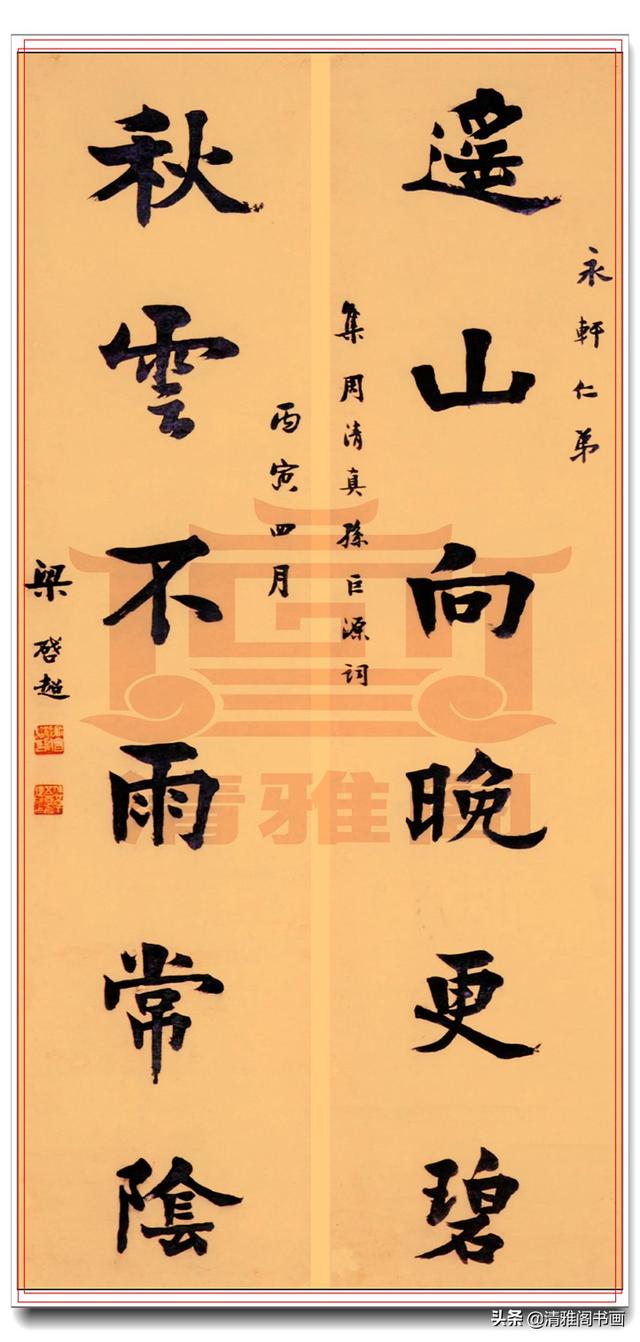 永軒仁弟
遥山向晚更碧
集周清真孫巨源詞
秋雲不雨常陰
丙寅四月
梁啓超
清雅阁
头条 @清雅阁书画